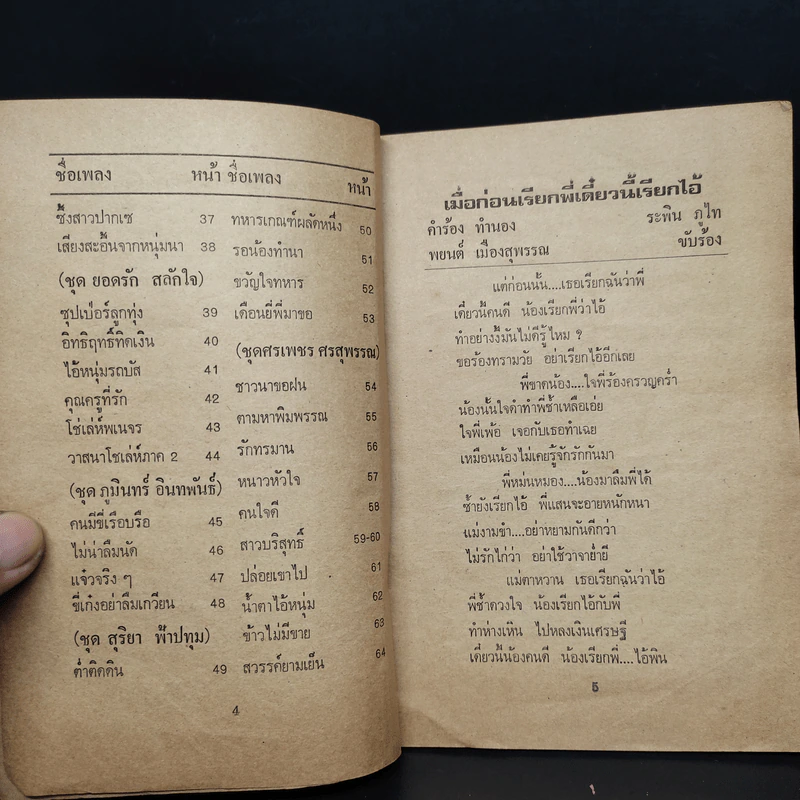 ชื่อเพลง หน้า
ซึ้งสาวปากเซ 37
เสียงสะอื้นจากหนุ่มนา 38
(ชุด ยอดรัก สลักใจ)
ซุปเปอร์ลูกทุ่ง 39
อิทธิฤทธิ์ทิดเงิน 40
ไอ้หนุ่มรถบัส 41
คุณครูที่รัก 42
โชเล่ห์พเนจร 43
วาสนาโชเล่ห์ภาค 2 44
(ชุด ภูมินทร์ อินทพันธ์)
คนมีขี่เรือบรือ 45
ไม่น่าลืมนัด 46
แจ๋วจริง ๆ 47
ขี่เก๋งอย่าลืมเกวียน 48
(ชุด สุริยา ฟ้าปทุม)
ต่ำติดดิน 49
ชื่อเพลง หน้า
ทหารเกณฑ์ผลัดหนึ่ง 50
รอน้องทำนา 51
ขวัญใจทหาร 52
เดือนยี่พี่มาขอ 53
(ชุดศรเพชร ศรสุพรรณ)
ชาวนาขอฝน 54
ตามหาพิมพรรณ 55
รักทรมาน 56
หนาวหัวใจ 57
คนใจดี 58
สาวบริสุทธิ์ 59-60
ปล่อยเขาไป 61
น้ำตาไอ้หนุ่ม 62
ข้าวไม่มีขาย 63
สวรรค์ยามเย็น 64
4
เมื่อก่อนเรียกพี่เดี๋ยวนี้เรียกไอ้
คำร้อง ทำนอง ระพิน ภูไท
พยนต์ เมืองสุพรรณ ขับร้อง
แต่ก่อนนั้น....เธอเรียกฉันว่าพี่
เดี๋ยวนี้คนดี น้องเรียกพี่ว่าไอ้
ทำอย่างงี้มันไม่ดีรู้ไหม ?
ขอร้องทรามวัย อย่าเรียกไอ้อีกเลย
พี่ขาดน้อง....ใจพี่ร้องครวญคร่ำ
น้องนั้นใจดำทำพี่ช้ำเหลือเอ่ย
ใจพี่เพ้อ เจอกับเธอทำเฉย
เหมือนน้องไม่เคยรู้จักรักกันมา
พี่หม่นหมอง....น้องมาลืมพี่ได้
ซ้ำยังเรียกไอ้ พี่แสนจะอายหนักหนา
แม่งามขำ....อย่าหยามกันดีกว่า
ไม่รักไก่ว่า อย่าใช้วาจาย่ำยี
แม่ตาหวาน เธอเรียกฉันว่าไอ้
พี่ช้ำดวงใจ น้องเรียกไอ้กับพี่
ทำห่างเหิน ไปหลงเงินเศรษฐี
เดี๋ยวนี้น้องคนดี น้องเรียกพี่....ไอ้พิน
5